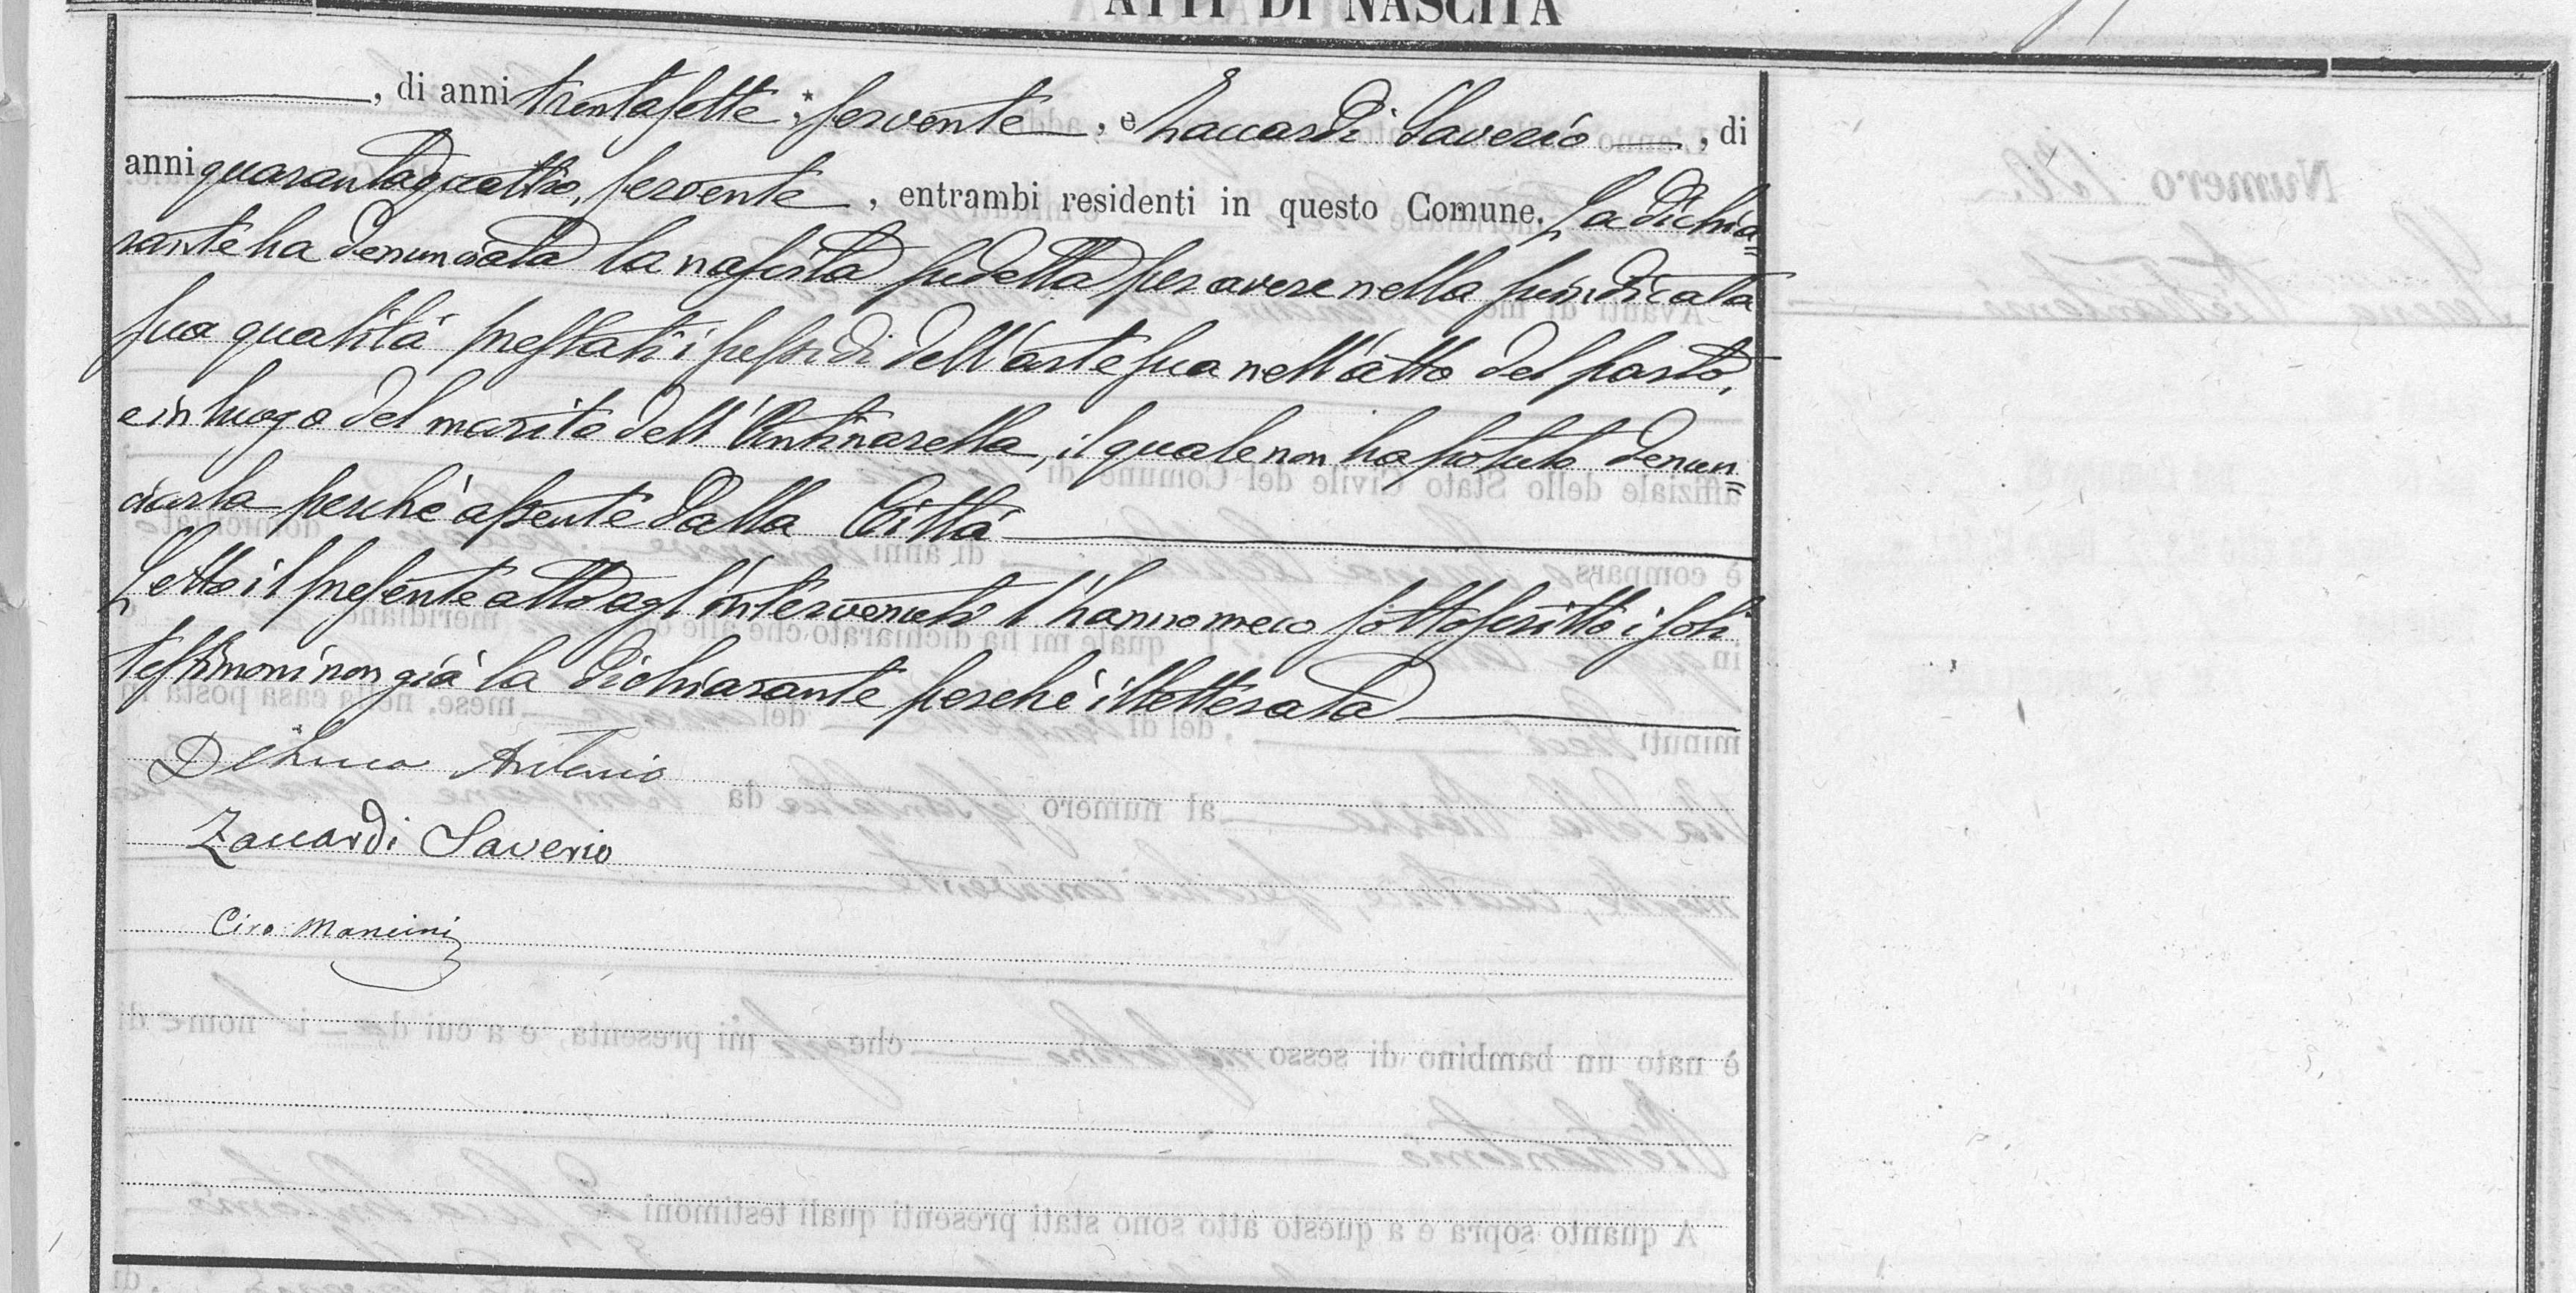 ATTI DI NASCITA
, di anni trentasette, servente, e Zaccardi Saverio, di
anni quarantaquattro, servente, entrambi residenti in questo Comune. La dichia=
rante ha denunciata la nascita sudetta per avere nella suindicata
sua qualità prestati i sussidi dell'arte sua nell'atto del parto,
e in luogo del marito dell'Antinarella, il quale non ha potuto denun=
ciarla perchè assente dalla Città
Letto il presente atto agl'intervenuti l'hanno meco sottoscritto i soli
testimoni non già la dichiarante perchè illetterata
DeLuca Antonio
Zaccardi Saverio
Ciro Mancini